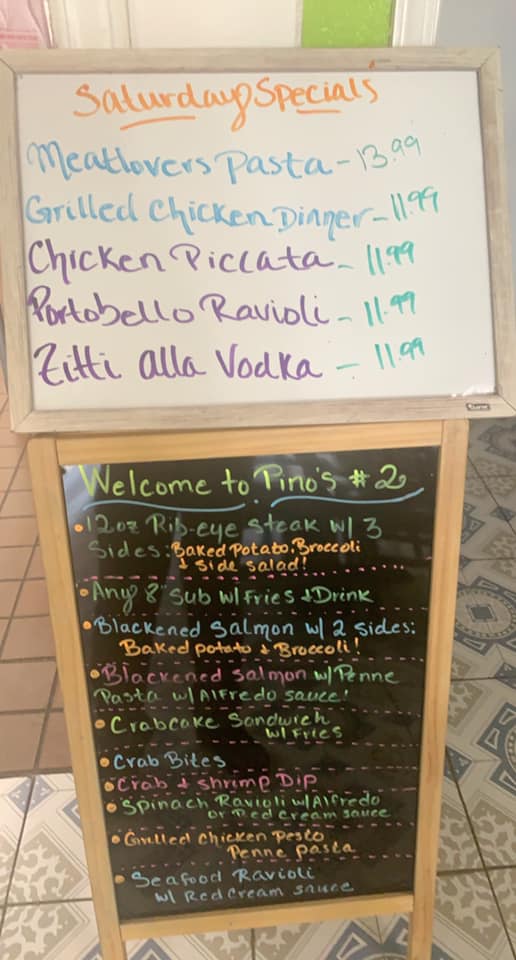 Saturday Specials
Meatlovers Pasta - 13.99
Grilled Chicken Dinner - 11.99
Chicken Piccata - 11.99
Portobello Ravioli - 11.99
Zitti alla Vodka - 11.99
Welcome to Pino's #2
• 12oz Rib-eye steak w/ 3
Sides: Baked Potato, Broccoli
& Side Salad!
• Any 8" Sub w/ Fries & Drink
• Blackened Salmon w/ 2 sides:
Baked potato & Broccoli!
• Blackened Salmon w/ Penne
Pasta w/ Alfredo sauce!
• Crabcake Sandwich
w/ Fries
• Crab Bites
• Crab & shrimp Dip
• Spinach Ravioli w/ Alfredo
or Red cream sauce
• Grilled Chicken Pesto
Penne pasta
• Seafood Ravioli
w/ Red Cream sauce